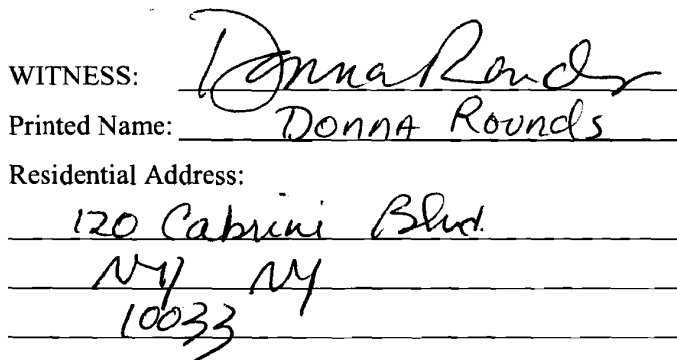 WITNESS: Donna Rounds
Printed Name: Donna Rounds
Residential Address:
120 Cabrini Blvd.
NY NY
10033